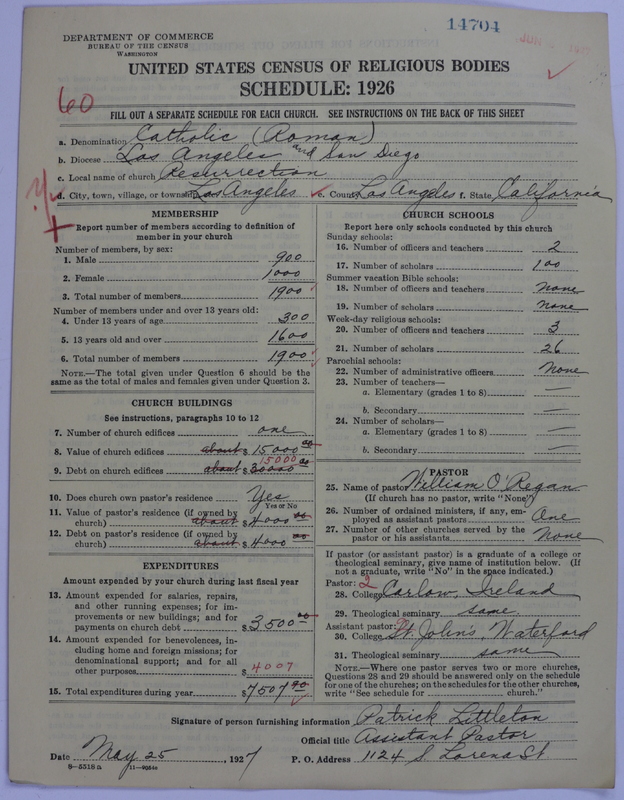 14704
DEPARTMENT OF COMMERCE
BUREAU OF THE CENSUS
WASHINGTON
UNITED STATES CENSUS OF RELIGIOUS BODIES
SCHEDULE: 1926
60
FILL OUT A SEPARATE SCHEDULE FOR EACH CHURCH. SEE INSTRUCTIONS ON THE BACK OF THIS SHEET
a. Denomination Catholic (Roman)
b. Diocese Los Angeles and San Diego
c. Local name of church Resurrection
d. City, town, village, or township Los Angeles e. County Los Angeles f. State California
MEMBERSHIP
Report number of members according to definition of
member in your church
Number of members, by sex:
1. Male 900
2. Female 1000
3. Total number of members 1900
Number of members under and over 13 years old:
4. Under 13 years of age 300
5. 13 years old and over 1600
6. Total number of members 1900
NOTE.—The total given under Question 6 should be the
same as the total of males and females given under Question 3.
CHURCH BUILDINGS
See instructions, paragraphs 10 to 12
7. Number of church edifices one
8. Value of church edifices about $ 15000 00
15000
9. Debt on church edifices about $ 30000 00
10. Does church own pastor's residence Yes
Yes or No
11. Value of pastor's residence (if owned by
church) about $ 4000 00
12. Debt on pastor's residence (if owned by
church) about $ 4000 00
EXPENDITURES
Amount expended by your church during last fiscal year
13. Amount expended for salaries, repairs,
and other running expenses; for im-
provements or new buildings; and for
payments on church debt $ 3500 00
14. Amount expended for benevolences, in-
cluding home and foreign missions; for
denominational support; and for all
other purposes $ 4007
15. Total expenditures during year $ 7507 00
CHURCH SCHOOLS
Report here only schools conducted by this church
Sunday schools:
16. Number of officers and teachers 2
17. Number of scholars 100
Summer vacation Bible schools:
18. Number of officers and teachers none
19. Number of scholars none
Week-day religious schools:
20. Number of officers and teachers 3
21. Number of scholars 26
Parochial schools:
22. Number of administrative officers None
23. Number of teachers—
a. Elementary (grades 1 to 8) —
b. Secondary —
24. Number of scholars—
a. Elementary (grades 1 to 8) —
b. Secondary —
PASTOR
25. Name of pastor William O'Regan
(If church has no pastor, write "None")
26. Number of ordained ministers, if any, em-
ployed as assistant pastors One
27. Number of other churches served by the
pastor or his assistants None
If pastor (or assistant pastor) is a graduate of a college or
theological seminary, give name of institution below. (If
not a graduate, write "No" in the space indicated.)
Pastor: 2
28. College Carlow, Ireland
29. Theological seminary same
Assistant pastor:
30. College St. John's, Waterford
31. Theological seminary same
NOTE.—Where one pastor serves two or more churches,
Questions 28 and 29 should be answered only on the schedule
for one of the churches; on the schedules for the other churches,
write "See schedule for church."
Signature of person furnishing information Patrick Littleton
Official title Assistant Pastor
Date May 25, 1927 P. O. Address 1124 S. Lorena St.
8—5518 a